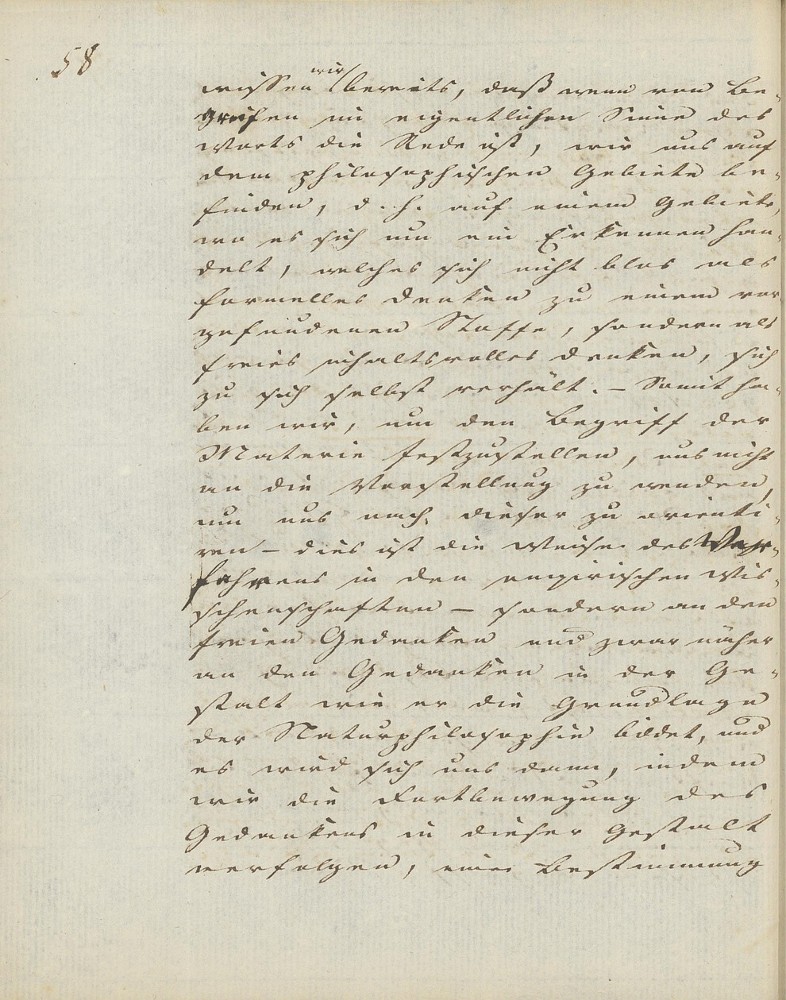 58
wir
wissen bereits, daß wenn von Be-
greifen im eigentlichen Sinne des
Worts die Rede ist, wir uns auf
dem philosophischen Gebiete be-
finden, d. h. auf einem Gebiete,
wo es sich um ein Erkennen han-
delt, welches sich nicht blos als
formelles Denken zu einem vor
gefundenen Stoffe, sondern als
freies inhaltsvolles Denken, sich
zu sich selbst verhält. – Somit ha-
ben wir, um den Begriff der
Materie festzustellen, uns nicht
an die Vorstellung zu wenden,
um uns nach dieser zu orienti-
ren – dies ist die Weise des Ver-
fahrens in den empirischen Wis-
senschaften – sondern an den
freien Gedanken und zwar näher
an den Gedanken in der Ge-
stalt wie er die Grundlage
der Naturphilosophie bildet, und
es wird sich uns dann, indem
wir die Fortbewegung des
Gedankens in dieser Gestalt
verfolgen, eine Bestimmung